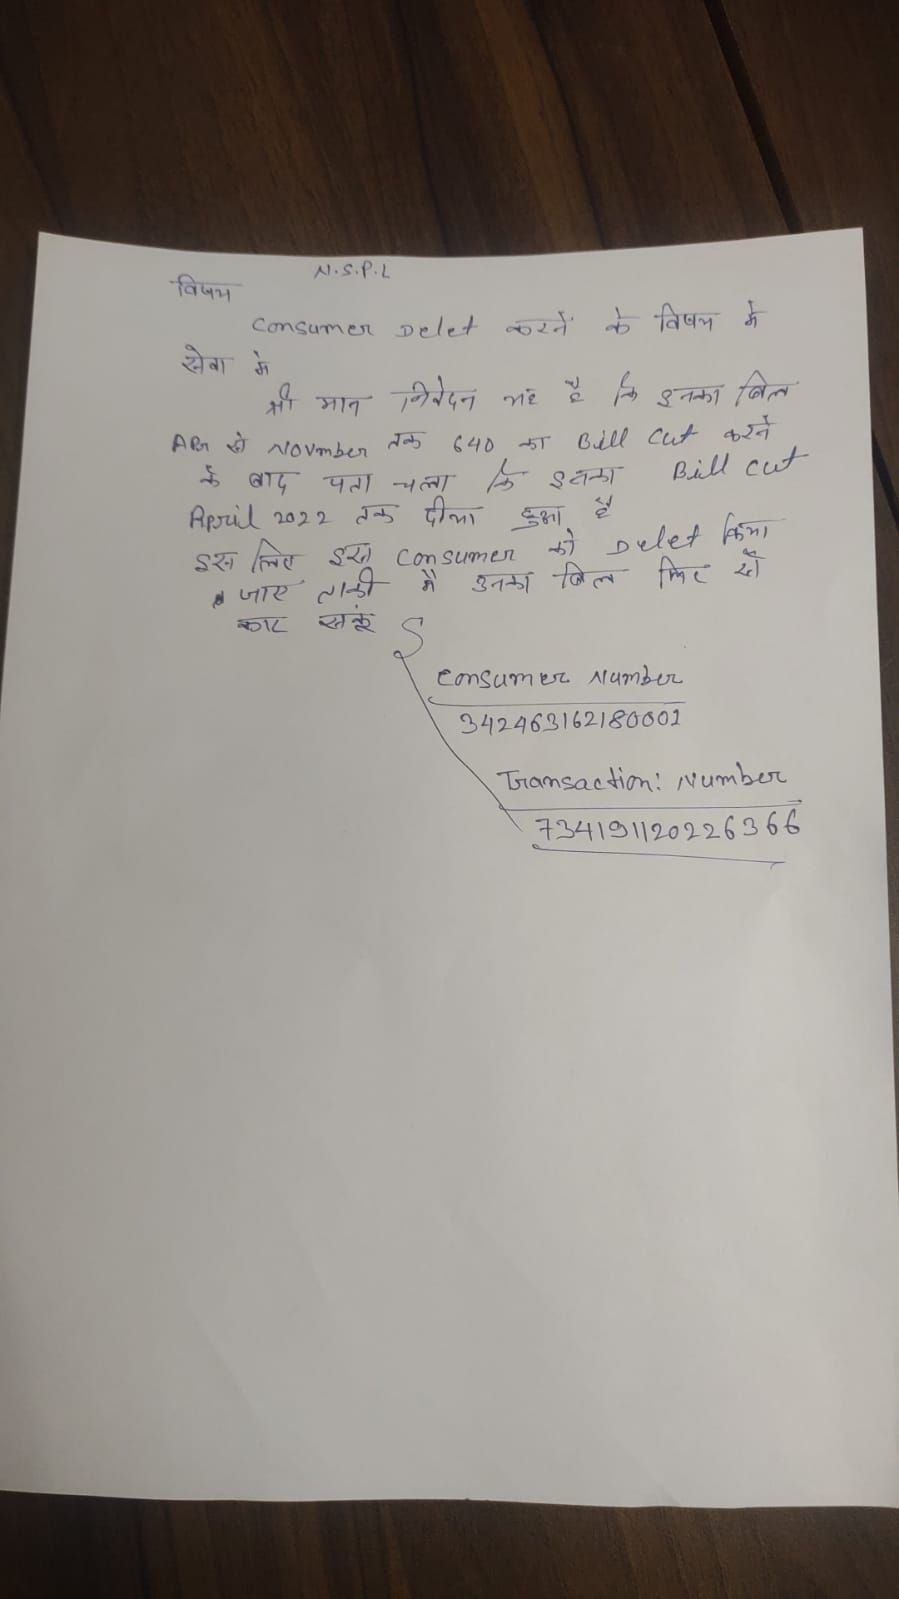 N.S.P.L
विषय
Consumer Delet करनें के विषय मे
सेवा मे
श्री मान निवेदन यह है कि इनका बिल
APr से Novmber तक 640 का Bill Cut करने
के बाद पता चला कि इनका Bill cut
April 2022 तक दीया हुआ है
इस लिए इस Consumer को Delet किया
जाए ताकी मै उनका बिल फिर से
काट सकूं
Consumer Number
342463162180002
Transaction: Number
734191120226366